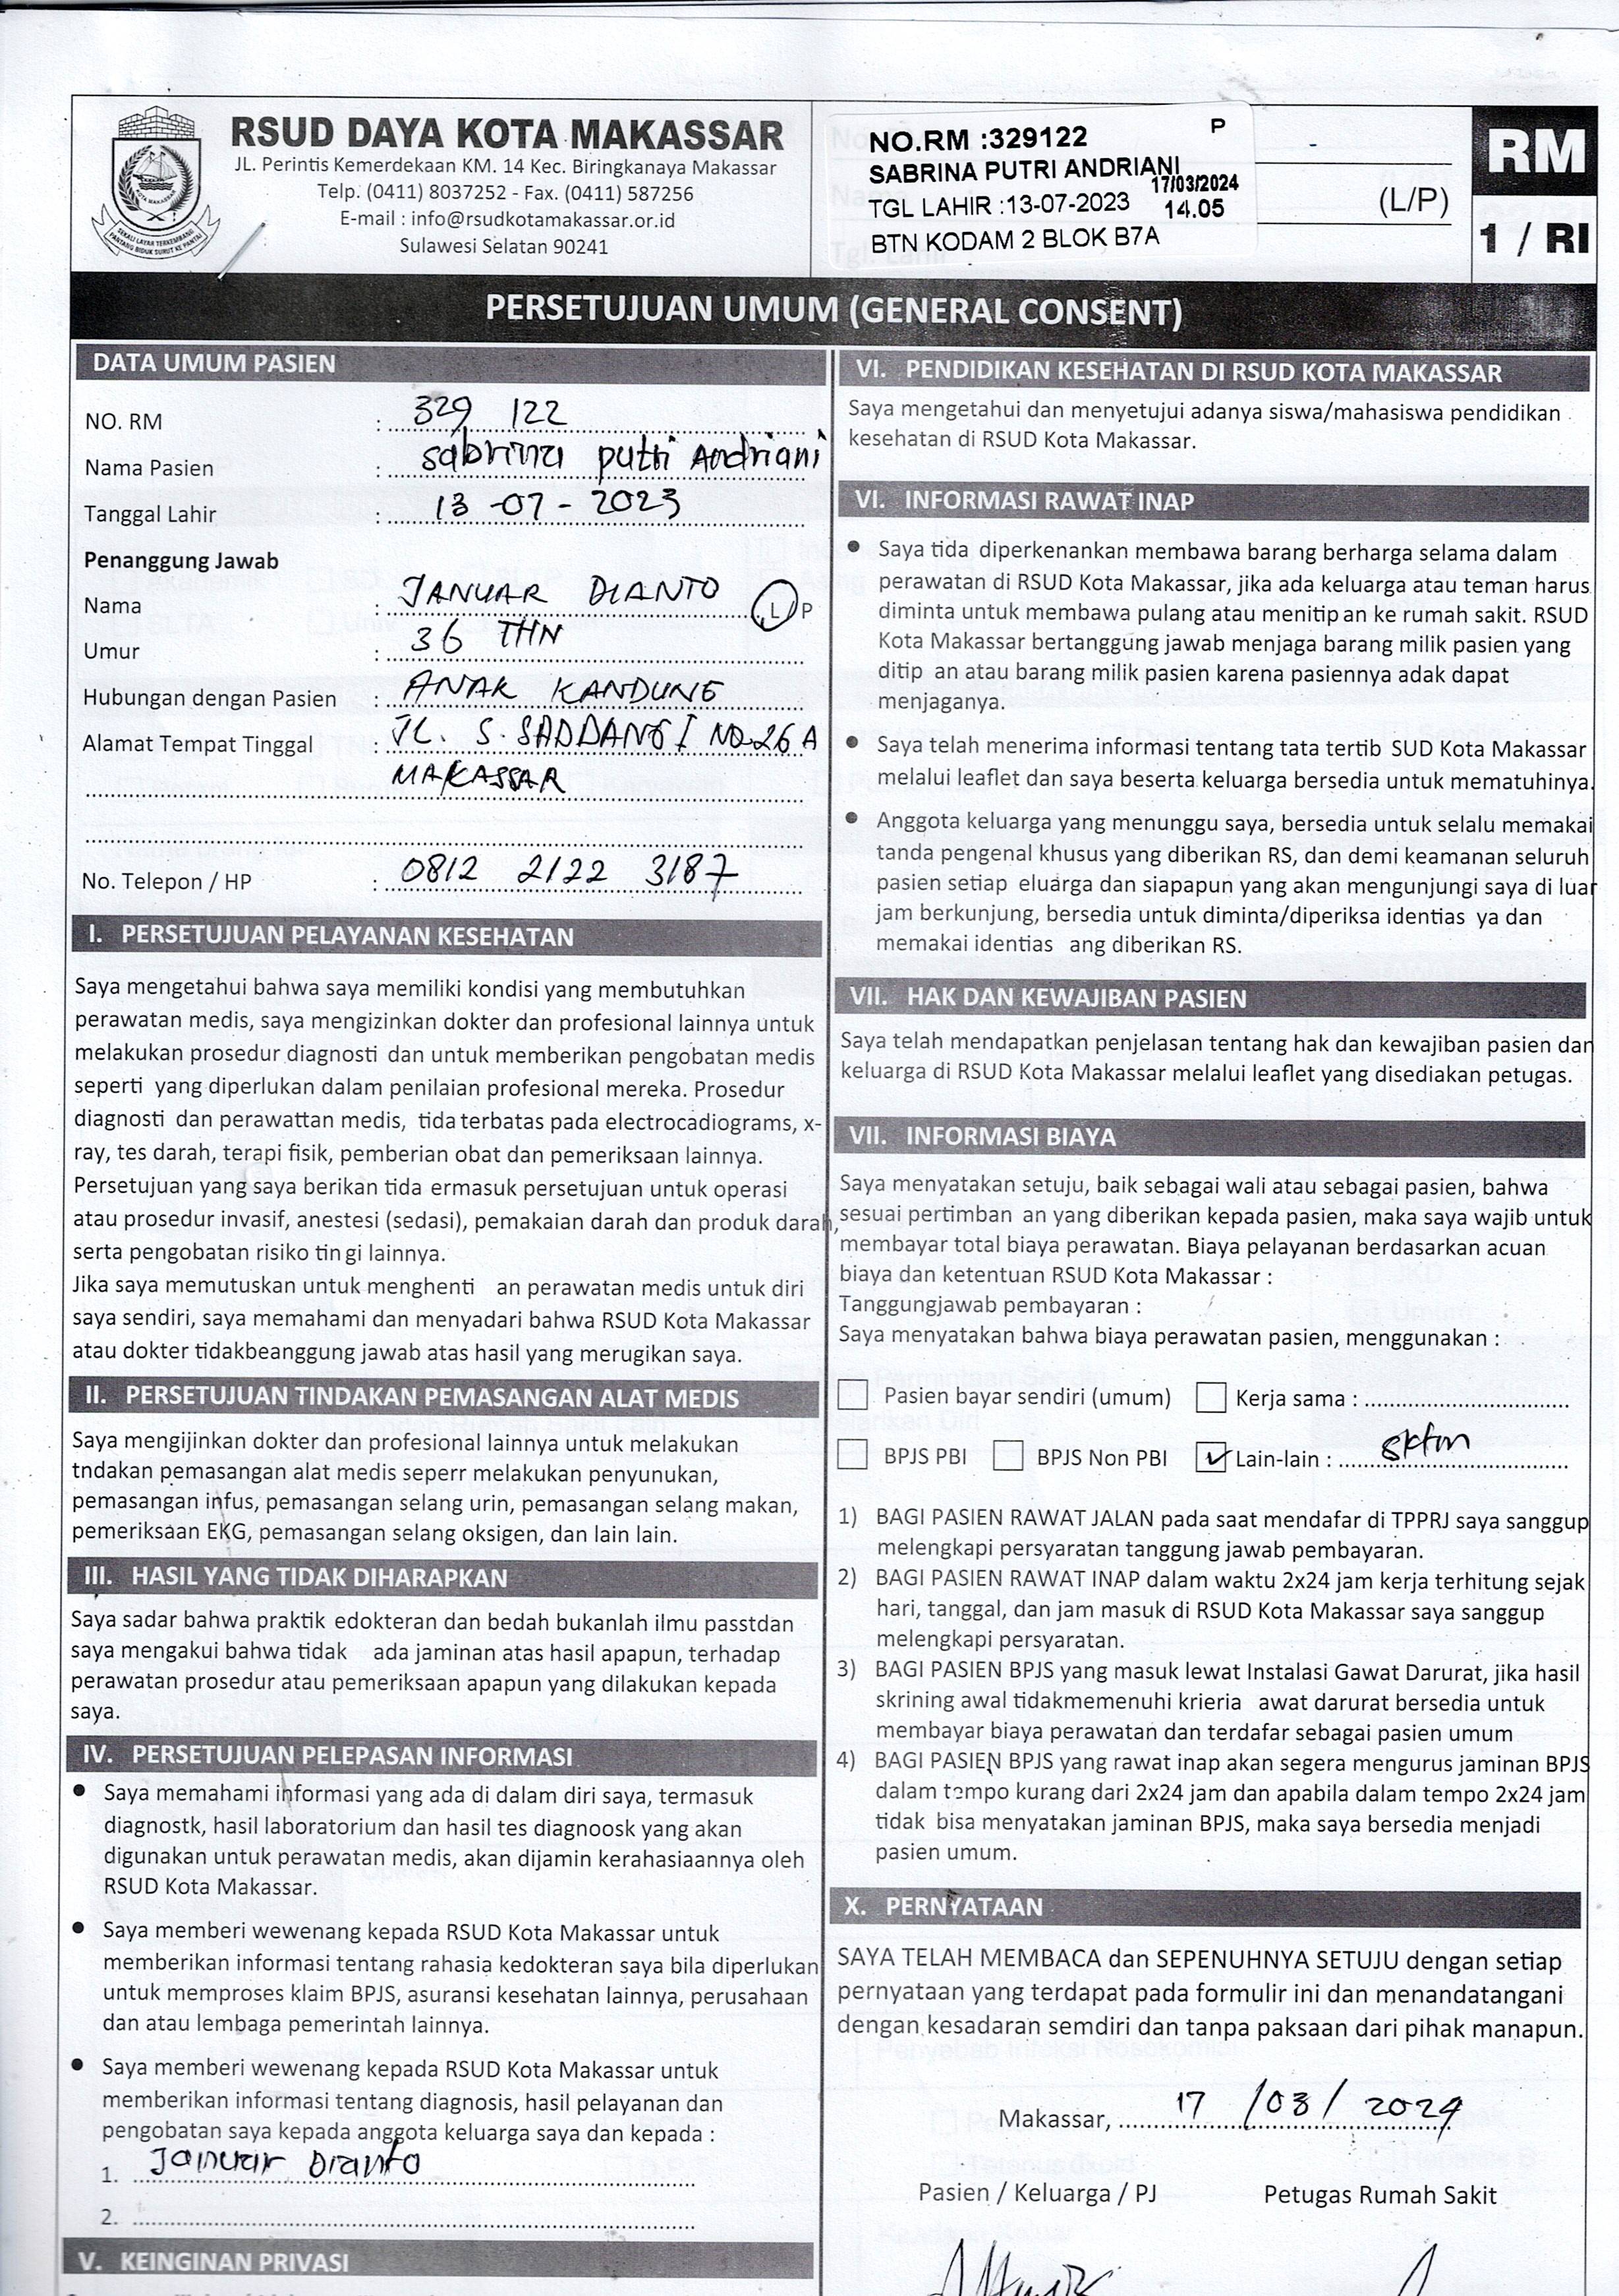 RSUD DAYA KOTA MAKASSAR
JL. Perintis Kemerdekaan KM. 14 Kec. Biringkanaya Makassar
Telp. (0411) 8037252 - Fax. (0411) 587256
E-mail : info@rsudkotamakassar.or.id
Sulawesi Selatan 90241
KOTA MAKASSAR
SEKALI LAYAR TERKEMBANG
PANTANG BIDUK SURUT KE PANTAI
NO.RM :329122 P
SABRINA PUTRI ANDRIANI
17/03/2024
TGL LAHIR :13-07-2023 14.05
BTN KODAM 2 BLOK B7A
(L/P)
RM
1 / RI
PERSETUJUAN UMUM (GENERAL CONSENT)
DATA UMUM PASIEN
NO. RM : 329 122
Nama Pasien : sabrina putri Andriani
Tanggal Lahir : 13 -07 - 2023
Penanggung Jawab
Nama : JANUAR DIANTO L/P
Umur : 36 THN
Hubungan dengan Pasien : ANAK KANDUNG
Alamat Tempat Tinggal : JL. S. SADDANG I NO.26 A
MAKASSAR
No. Telepon / HP : 0812 2122 3187
I. PERSETUJUAN PELAYANAN KESEHATAN
Saya mengetahui bahwa saya memiliki kondisi yang membutuhkan
perawatan medis, saya mengizinkan dokter dan profesional lainnya untuk
melakukan prosedur diagnosti dan untuk memberikan pengobatan medis
seperti yang diperlukan dalam penilaian profesional mereka. Prosedur
diagnosti dan perawattan medis, tida terbatas pada electrocadiograms, x-
ray, tes darah, terapi fisik, pemberian obat dan pemeriksaan lainnya.
Persetujuan yang saya berikan tida ermasuk persetujuan untuk operasi
atau prosedur invasif, anestesi (sedasi), pemakaian darah dan produk darah,
serta pengobatan risiko tin gi lainnya.
Jika saya memutuskan untuk menghenti an perawatan medis untuk diri
saya sendiri, saya memahami dan menyadari bahwa RSUD Kota Makassar
atau dokter tidakbeanggung jawab atas hasil yang merugikan saya.
II. PERSETUJUAN TINDAKAN PEMASANGAN ALAT MEDIS
Saya mengijinkan dokter dan profesional lainnya untuk melakukan
tndakan pemasangan alat medis seperr melakukan penyunukan,
pemasangan infus, pemasangan selang urin, pemasangan selang makan,
pemeriksaan EKG, pemasangan selang oksigen, dan lain lain.
III. HASIL YANG TIDAK DIHARAPKAN
Saya sadar bahwa praktik edokteran dan bedah bukanlah ilmu passtdan
saya mengakui bahwa tidak ada jaminan atas hasil apapun, terhadap
perawatan prosedur atau pemeriksaan apapun yang dilakukan kepada
saya.
IV. PERSETUJUAN PELEPASAN INFORMASI
• Saya memahami informasi yang ada di dalam diri saya, termasuk
diagnostk, hasil laboratorium dan hasil tes diagnoosk yang akan
digunakan untuk perawatan medis, akan dijamin kerahasiaannya oleh
RSUD Kota Makassar.
• Saya memberi wewenang kepada RSUD Kota Makassar untuk
memberikan informasi tentang rahasia kedokteran saya bila diperlukan
untuk memproses klaim BPJS, asuransi kesehatan lainnya, perusahaan
dan atau lembaga pemerintah lainnya.
• Saya memberi wewenang kepada RSUD Kota Makassar untuk
memberikan informasi tentang diagnosis, hasil pelayanan dan
pengobatan saya kepada anggota keluarga saya dan kepada :
1. Januar Dianto
2.
V. KEINGINAN PRIVASI
VI. PENDIDIKAN KESEHATAN DI RSUD KOTA MAKASSAR
Saya mengetahui dan menyetujui adanya siswa/mahasiswa pendidikan
kesehatan di RSUD Kota Makassar.
VI. INFORMASI RAWAT INAP
• Saya tida diperkenankan membawa barang berharga selama dalam
perawatan di RSUD Kota Makassar, jika ada keluarga atau teman harus
diminta untuk membawa pulang atau menitip an ke rumah sakit. RSUD
Kota Makassar bertanggung jawab menjaga barang milik pasien yang
ditip an atau barang milik pasien karena pasiennya adak dapat
menjaganya.
• Saya telah menerima informasi tentang tata tertib SUD Kota Makassar
melalui leaflet dan saya beserta keluarga bersedia untuk mematuhinya.
• Anggota keluarga yang menunggu saya, bersedia untuk selalu memakai
tanda pengenal khusus yang diberikan RS, dan demi keamanan seluruh
pasien setiap eluarga dan siapapun yang akan mengunjungi saya di luar
jam berkunjung, bersedia untuk diminta/diperiksa identias ya dan
memakai identias ang diberikan RS.
VII. HAK DAN KEWAJIBAN PASIEN
Saya telah mendapatkan penjelasan tentang hak dan kewajiban pasien dan
keluarga di RSUD Kota Makassar melalui leaflet yang disediakan petugas.
VII. INFORMASI BIAYA
Saya menyatakan setuju, baik sebagai wali atau sebagai pasien, bahwa
sesuai pertimban an yang diberikan kepada pasien, maka saya wajib untuk
membayar total biaya perawatan. Biaya pelayanan berdasarkan acuan
biaya dan ketentuan RSUD Kota Makassar :
Tanggungjawab pembayaran :
Saya menyatakan bahwa biaya perawatan pasien, menggunakan :
Pasien bayar sendiri (umum) Kerja sama :
BPJS PBI BPJS Non PBI ✓ Lain-lain : sktm
1) BAGI PASIEN RAWAT JALAN pada saat mendafar di TPPRJ saya sanggup
melengkapi persyaratan tanggung jawab pembayaran.
2) BAGI PASIEN RAWAT INAP dalam waktu 2x24 jam kerja terhitung sejak
hari, tanggal, dan jam masuk di RSUD Kota Makassar saya sanggup
melengkapi persyaratan.
3) BAGI PASIEN BPJS yang masuk lewat Instalasi Gawat Darurat, jika hasil
skrining awal tidakmemenuhi krieria awat darurat bersedia untuk
membayar biaya perawatan dan terdafar sebagai pasien umum
4) BAGI PASIEN BPJS yang rawat inap akan segera mengurus jaminan BPJS
dalam tempo kurang dari 2x24 jam dan apabila dalam tempo 2x24 jam
tidak bisa menyatakan jaminan BPJS, maka saya bersedia menjadi
pasien umum.
X. PERNYATAAN
SAYA TELAH MEMBACA dan SEPENUHNYA SETUJU dengan setiap
pernyataan yang terdapat pada formulir ini dan menandatangani
dengan kesadaran semdiri dan tanpa paksaan dari pihak manapun.
Makassar, 17 /03/ 2024
Pasien / Keluarga / PJ Petugas Rumah Sakit